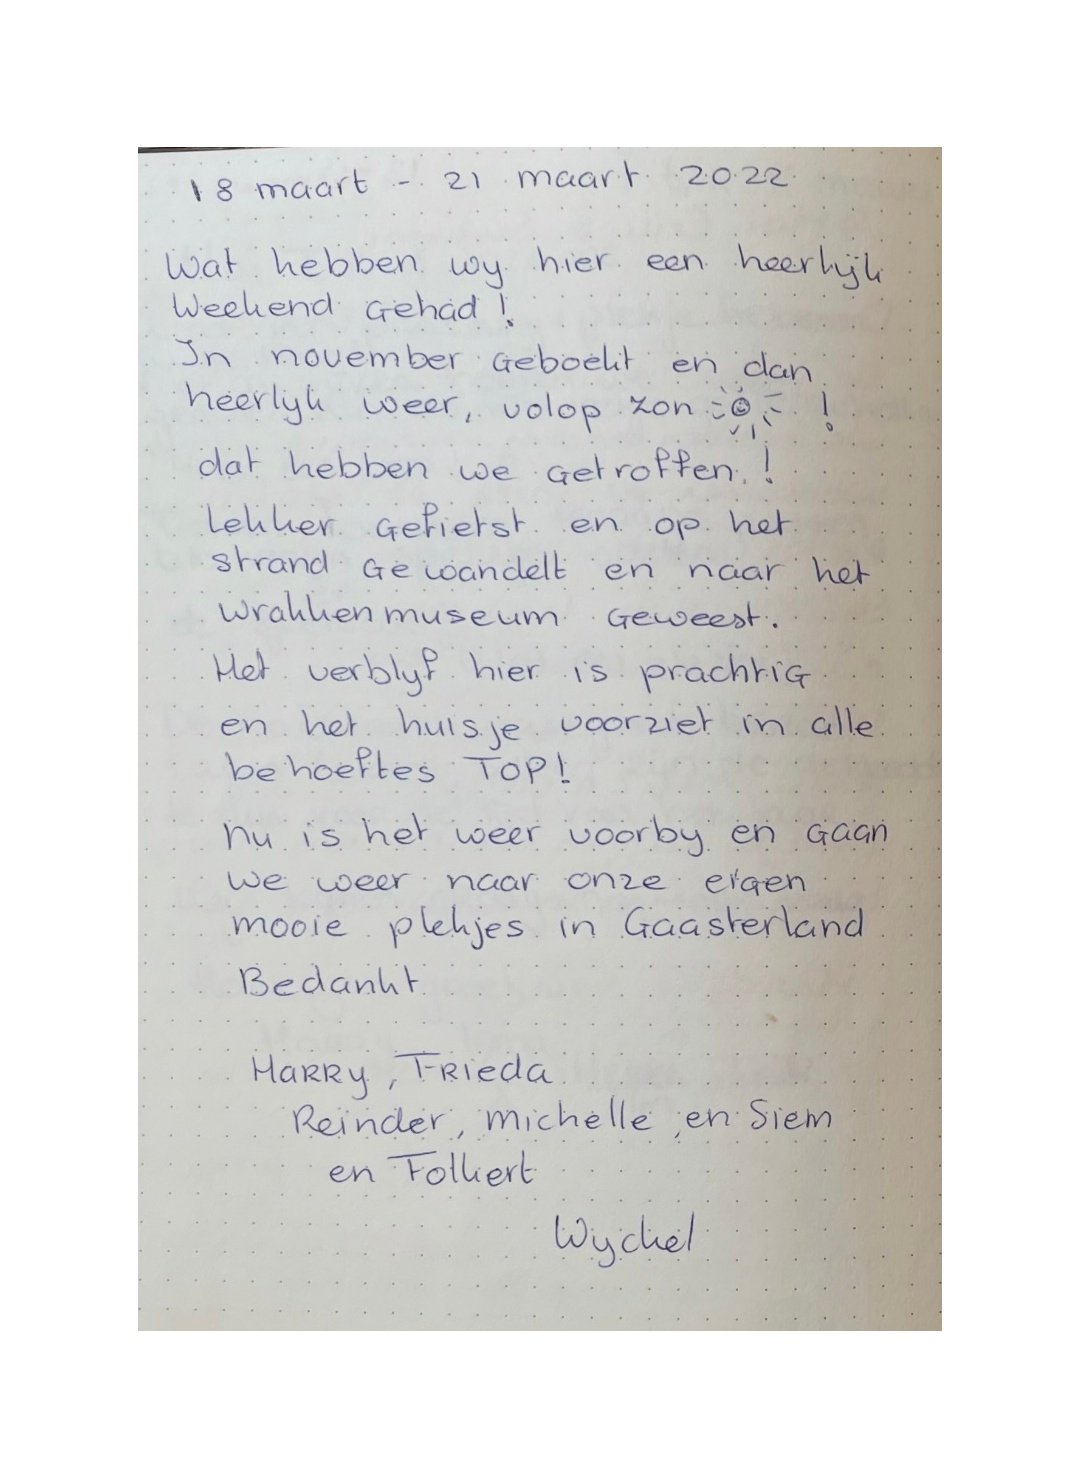 18 maart - 21 maart 2022
Wat hebben wy hier een heerlijk
weekend gehad!
In november geboekt en dan
heerlyk weer, volop zon !
dat hebben we getroffen!
Lekker gefietst en op het
strand gewandelt en naar het
wrakkenmuseum geweest.
Het verblyf hier is prachtig
en het huisje voorziet in alle
behoeftes TOP!
Nu is het weer voorby en gaan
we weer naar onze eigen
mooie plekjes in Gaasterland
Bedankt
Harry, Frieda
Reinder, Michelle en Siem
en Folkert
Wyckel